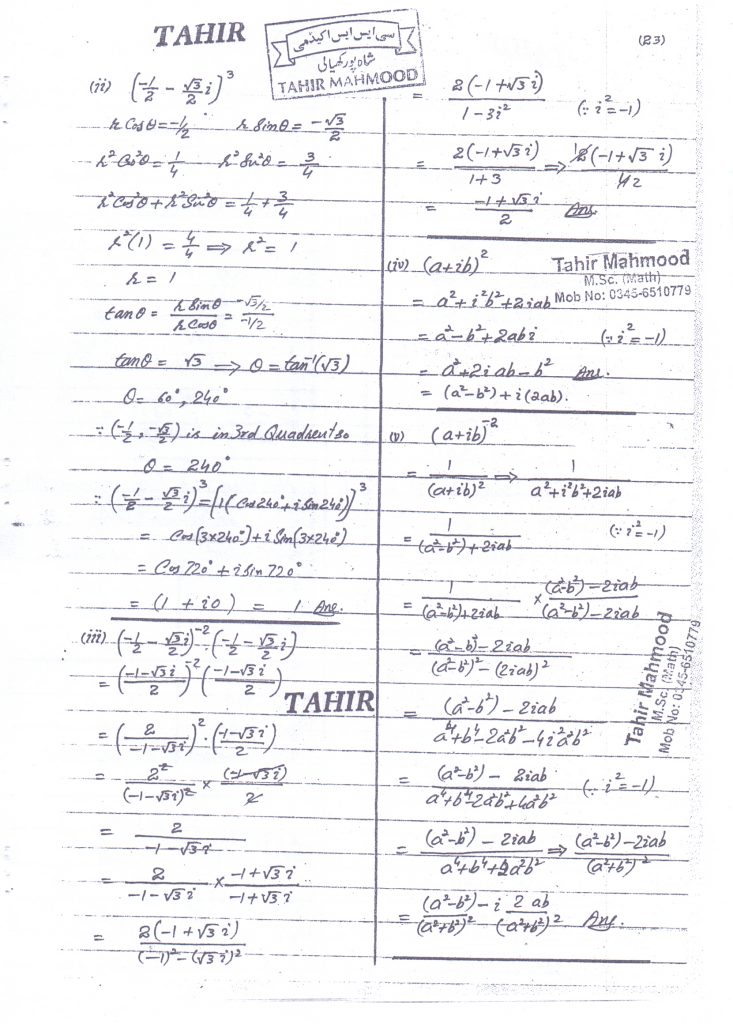 TAHIR
سی ایس ایس اکیڈمی
شاہ پور کھیالی
TAHIR MAHMOOD
(23)
(ii) (-1/2 - √3/2 i)³
r Cosθ = -1/2 r Sinθ = -√3/2
r²Cos²θ = 1/4 r²Sin²θ = 3/4
r²Cos²θ + r²Sin²θ = 1/4 + 3/4
r²(1) = 4/4 ⇒ r² = 1
r = 1
tanθ = r Sinθ / r Cosθ = (-√3/2) / (-1/2)
tanθ = √3 ⇒ θ = tan⁻¹(√3)
θ = 60°, 240°
∵ (-1/2, -√3/2) is in 3rd Quadrent so
θ = 240°
∵ (-1/2 - √3/2 i)³ = [1(Cos240° + i Sin240°)]³
= Cos(3×240°) + i Sin(3×240°)
= Cos720° + i Sin720°
= (1 + i0) = 1 Ans.
(iii) (-1/2 - √3/2 i)⁻² · (-1/2 - √3/2 i)
= ((-1-√3 i)/2)⁻² ((-1-√3 i)/2)
TAHIR
= (2/(-1-√3 i))² · ((-1-√3 i)/2)
= 2²/(-1-√3 i)² × (-1-√3 i)/2
= 2/(-1-√3 i)
= 2/(-1-√3 i) × (-1+√3 i)/(-1+√3 i)
= 2(-1+√3 i) / ((-1)² - (√3 i)²)
= 2(-1+√3 i) / (1-3i²) (∵ i² = -1)
= 2(-1+√3 i)/(1+3) ⇒ 2(-1+√3 i)/4 2
= (-1+√3 i)/2 Ans.
Tahir Mahmood
M.Sc. (Math)
Mob No: 0345-6510779
(iv) (a+ib)²
= a² + i²b² + 2iab
= a² - b² + 2abi (∵ i² = -1)
= a² + 2iab - b² Ans.
= (a² - b²) + i(2ab).
(v) (a+ib)⁻²
= 1/(a+ib)² ⇒ 1/(a² + i²b² + 2iab)
= 1/((a²-b²) + 2iab) (∵ i² = -1)
= 1/((a²-b²) + 2iab) × ((a²-b²) - 2iab)/((a²-b²) - 2iab)
= ((a²-b²) - 2iab) / ((a²-b²)² - (2iab)²)
= ((a²-b²) - 2iab) / (a⁴+b⁴-2a²b²-4i²a²b²)
= ((a²-b²) - 2iab) / (a⁴+b⁴-2a²b²+4a²b²) (∵ i² = -1)
= ((a²-b²) - 2iab) / (a⁴+b⁴+2a²b²) ⇒ ((a²-b²) - 2iab)/(a²+b²)²
= (a²-b²)/(a²+b²)² - i 2ab/(a²+b²)² Ans.
Tahir Mahmood
M.Sc. (Math)
Mob No: 0345-6510779